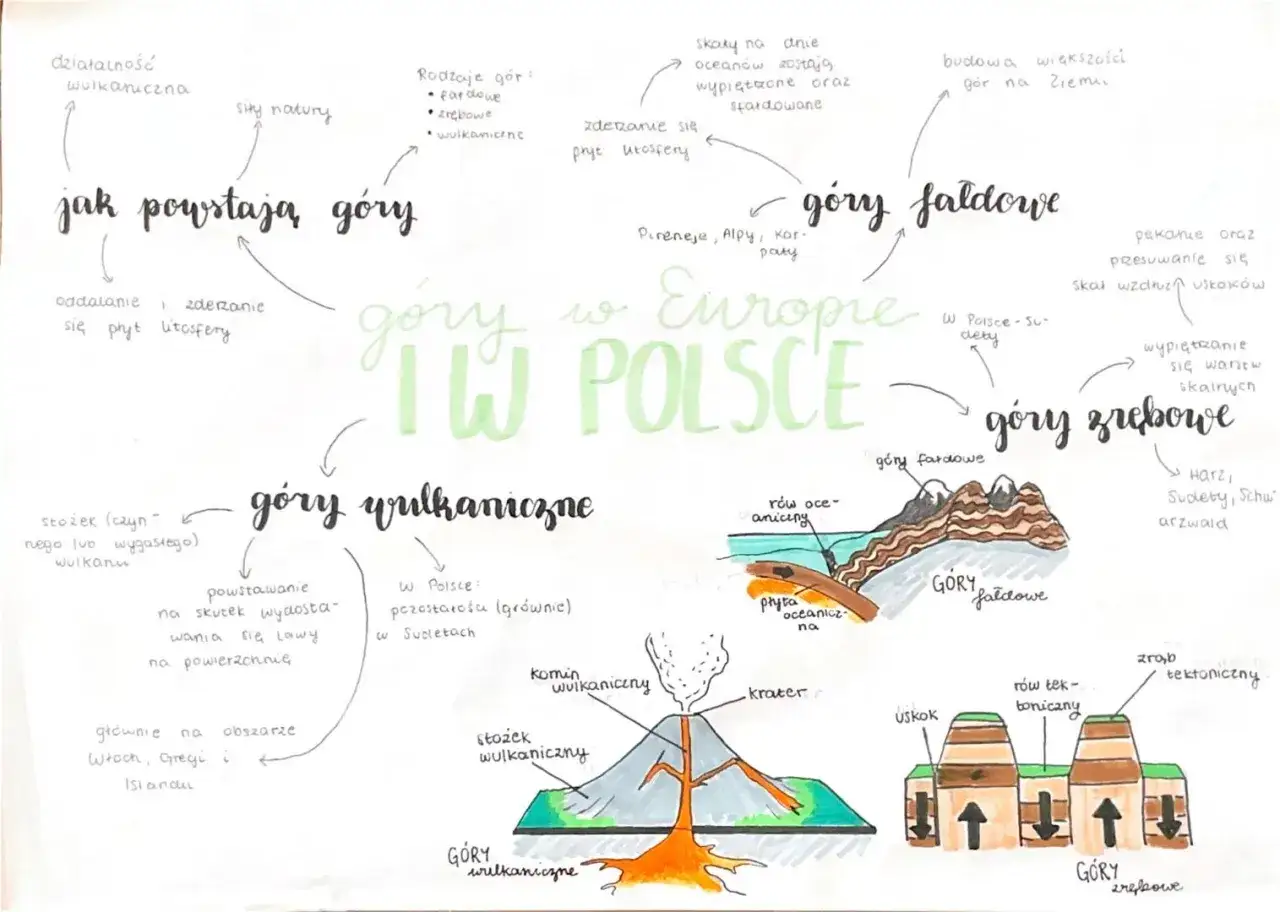 góry w Europie
I W POLSCE
jak powstają góry
działalność
wulkaniczna
siły natury
Rodzaje gór:
• fałdowe
• zrębowe
• wulkaniczne
oddalanie i zderzanie
się płyt litosfery
góry fałdowe
zderzanie się
płyt litosfery
skały na dnie
oceanów zostają
wypiętrzone oraz
sfałdowane
budowa większości
gór na Ziemi
Pireneje, Alpy, Kar-
paty
góry zrębowe
W Polsce - Su-
dety
wypiętrzanie
się warstw
skalnych
pękanie oraz
przesuwanie się
skał wzdłuż uskoków
Harz,
Sudety, Schw
arzwald
góry wulkaniczne
stożek (czyn-
nego lub wygasłego)
wulkanu
powstawanie
na skutek wydosta-
wania się lawy
na powierzchnię
W Polsce:
pozostałości (głównie)
w Sudetach
głównie na obszarze
Włoch, Grecji i
Islandii
góry fałdowe
rów oce-
aniczny
płyta
oceanicz-
na
GÓRY
fałdowe
komin
wulkaniczny
krater
stożek
wulkaniczny
GÓRY
wulkaniczne
uskok
rów tek-
toniczny
zrąb
tektoniczny
GÓRY
zrębowe